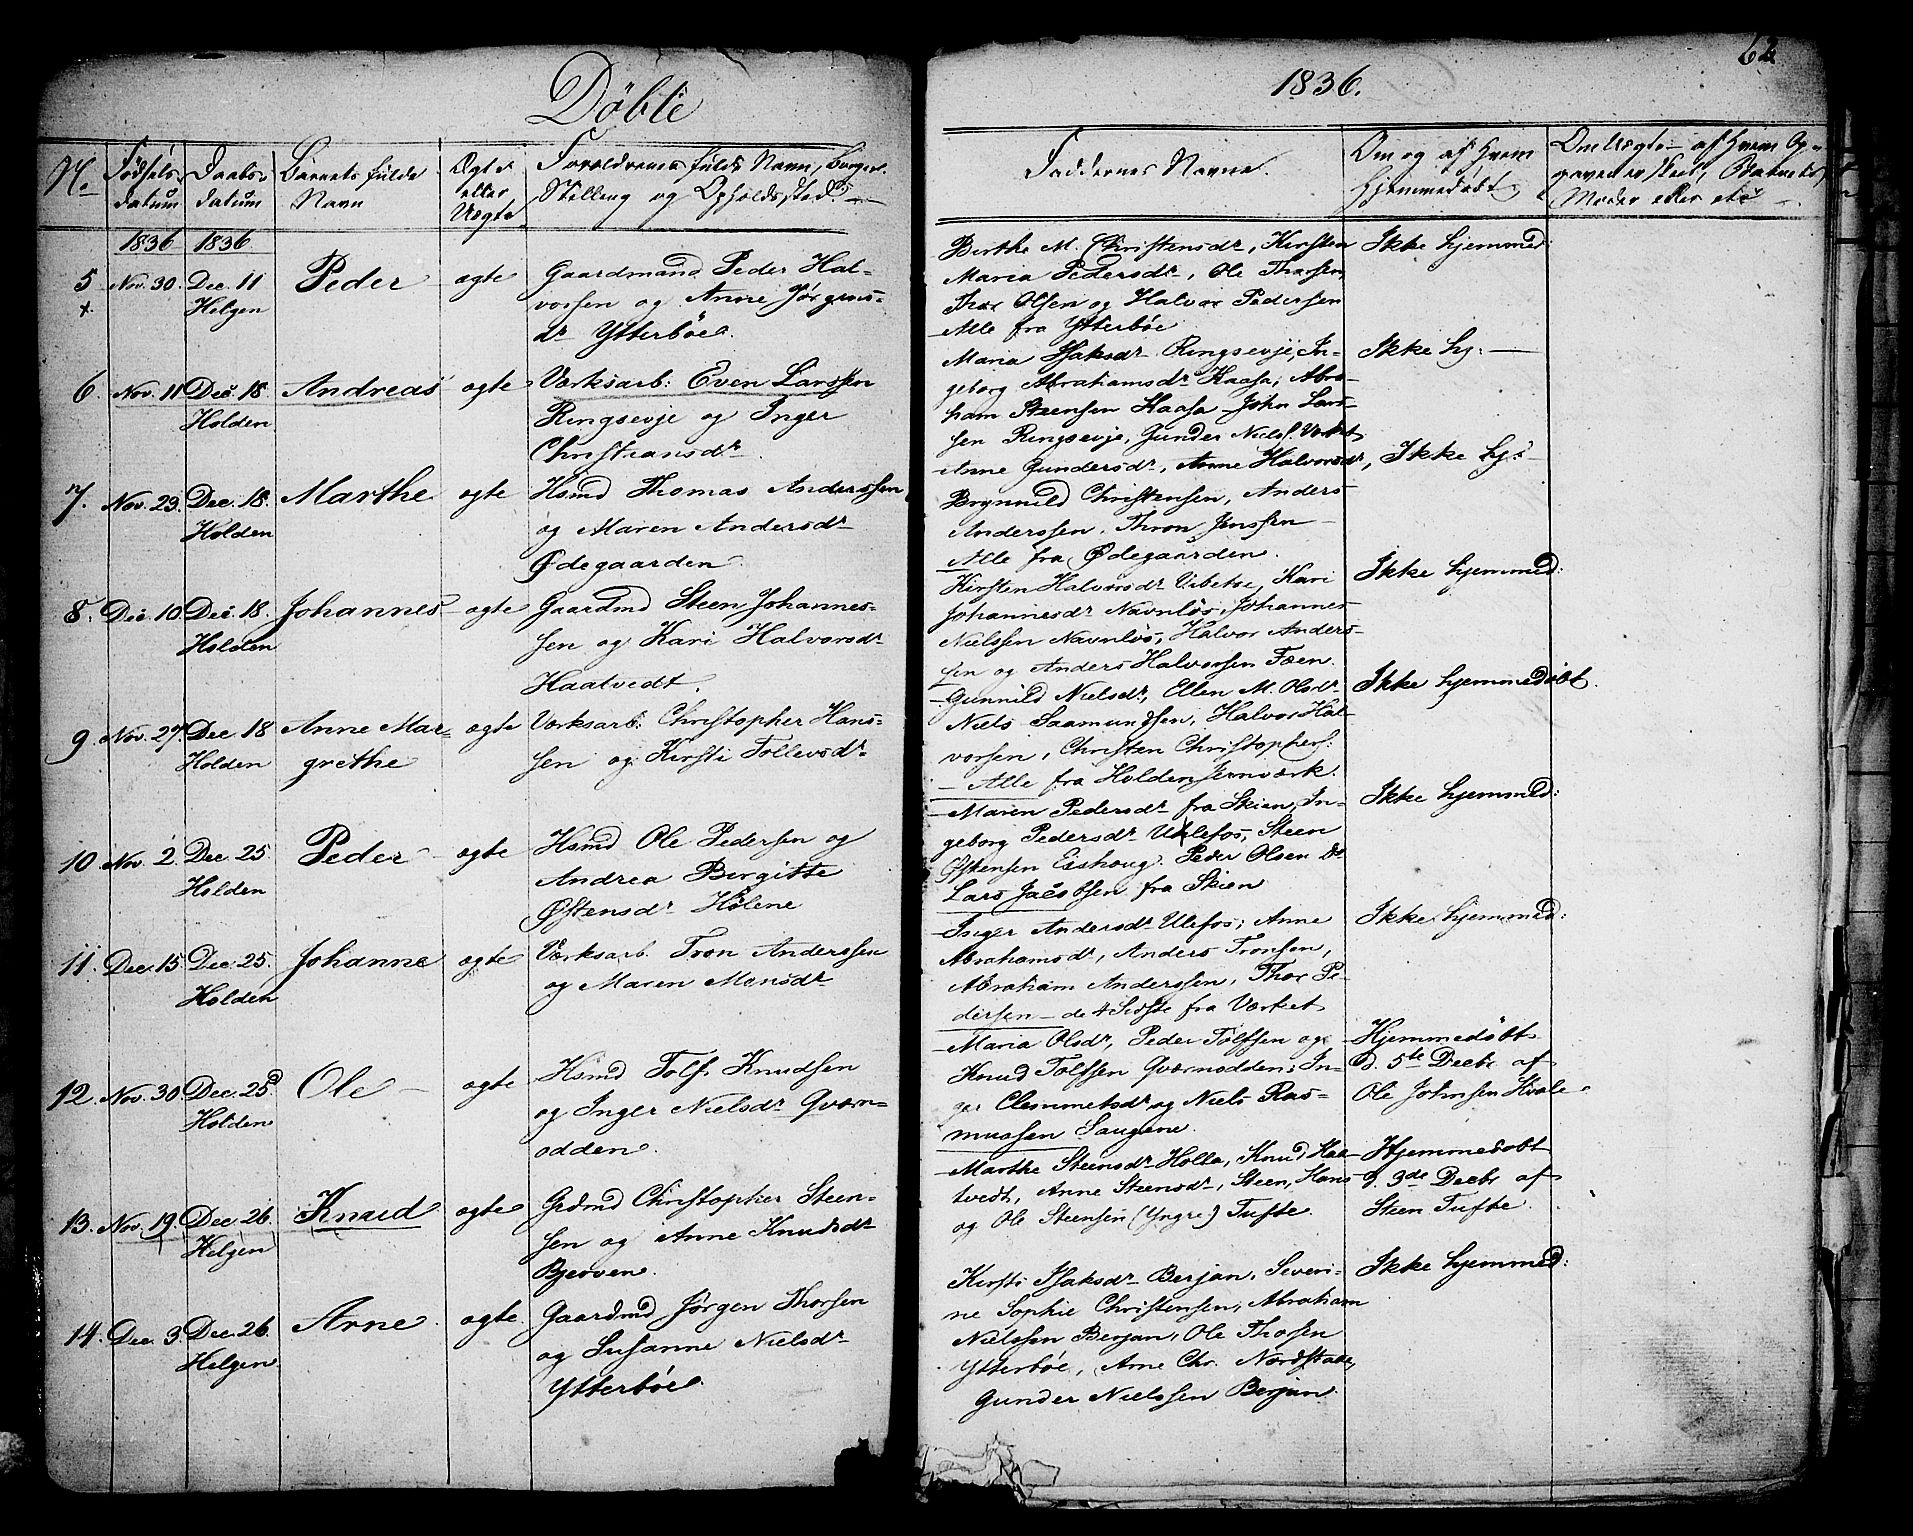 62
Døbte
1836.
No
Fødsels-
datum
Daabs-
datum
Barnets fulde
Navn
Ægte
eller
Uægte
Forældrenes fulde Navn, Borgerl.
Stilling og Opholdssted.
Faddernes Navne.
Om og af hvem
hjemmedøbt.
Om Uægte - af hvem Op-
gaven er skeet,
Moder eller
1836
1836
5
x.
Nov. 30.
Dec. 11
Helgen
Peder
ægte
Gaardmand Peder Hal-
vorsen og Anne Jørgens-
dr Ytterbøe.
Berthe M. Christensdr, Kirsten
Maria Pedersdr, Ole Thorsen,
Thor Olsen og Halvor Pedersen
Alle fra Ytterbøe
Ikke hjemmed:
6.
Nov. 11
Dec. 18.
Holden
Andreas
ægte
Værksarb: Even Larssen
Ringsevje og Inger
Christiansdr
Maria Isaksdr Ringsevje, In-
geborg Abrahamsdr Kaasa, Abra-
ham Steensen Kaasa John Lars-
sen Ringsevje, Gunder Niels. Værket
Ikke hj: -
7.
Nov. 23.
Dec. 18.
Holden
Marthe
ægte
Hsmd Thomas Anderssen
og Maren Andersdr
Ødegaarden.
Anne Gundersdr, Anne Halvorsdr,
Brynnild Christensen, Anders
Anderssen, Thron Jenssen
Alle fra Ødegaarden.
Ikke hj: -
8.
Dec. 10.
Dec. 18.
Holden
Johannes
ægte
Gaardmd Steen Johannes-
sen og Kari Halvorsdr
Haatvedt.
Kirsten Halvorsdr Vibetoe, Kari
Johannesdr Navnløs, Johannes
Nielssen Navnløs, Halvor Anders-
sen og Anders Halvorssen Fæen.
Ikke hjemmed:
9.
Nov. 27.
Dec. 18
Holden
Anne Mar-
grethe
ægte
Værksarb: Christopher Hans-
sen og Kirsti Tollevsdr
Gunnild Nielsdr, Ellen M. Olsdr
Niels Saamundsen, Halvor Hal-
vorsen, Christen Christophers:
- Alle fra Holden Jernværk.
Ikke hjemmedøbt.
10.
Nov. 2.
Dec. 25.
Holden
Peder
ægte
Hsmd Ole Pedersen og
Andrea Birgitte
Østensdr Holene
Maren Pedersdr fra Skien, In-
geborg Pedersdr Ulefos, Steen
Østensen Eishoug. Peder Olsen
Lars Jacobsen fra Skien
Ikke hjemmed:
11.
Dec. 15
Dec. 25.
Holden
Johanne
ægte
Værksarb. Tron Anderssen
og Maren Monsdr
Inger Andersdr Ulefos, Anne
Abrahamsdr, Anders Tronsen,
Abraham Anderssen, Thor Pe-
dersen - de 4 Sidste fra Værket
Ikke hjemmed:
12.
Nov. 30
Dec. 25.
Holden
Ole
ægte
Hsmd Tolf Knudsen
og Inger Nielsdr Qværn-
odden.
Maria Olsdr, Peder Tolfsen og
Knud Tolfsen Qværnodden, In-
ger Clemmetsdr og Niels Ras-
mussen Saugene.
Hjemmedøbt
d. 5te Decbr af
Ole Johnsen Hvale
13.
Nov. 19.
Dec. 26.
Helgen
Knud
ægte
Grdmd Christopher Steen-
sen og Anne Knudsdr
Bjerven.
Marthe Steensdr Holla, Knud Haa-
tvedt, Anne Steensdr, Steen, Hans
og Ole Steensen (Yngre) Tufte.
Hjemmedøbt
d. 3de Decbr af
Steen Tufte.
14.
Dec. 3.
Dec. 26.
Helgen
Arne
ægte.
Gaardmd Jørgen Thorsen
og Susanne Nielsdr
Ytterbøe
Kirsti Isaksdr Berjan, Severi-
ne Sophie Christensen, Abraham
Nielssen Berjan, Ole Thorsen
Ytterbøe, Arne Chr. Nordstabe,
Gunder Nielssen Berjan.
Ikke hjemmed: